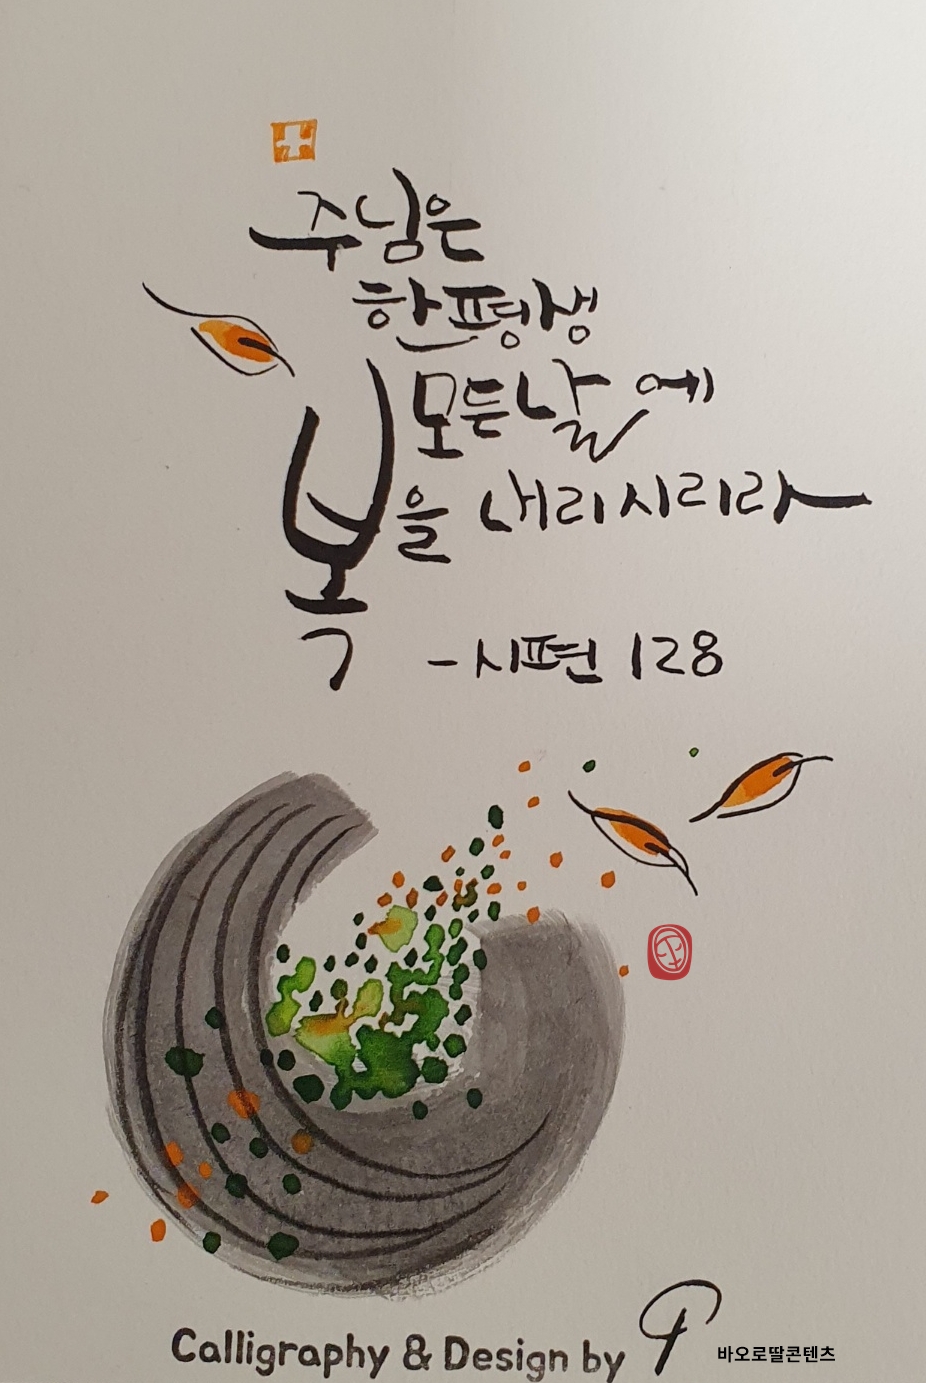 주님은
한평생
모든 날에
복을 내리시리라
-시편 128
Calligraphy & Design by
바오로딸콘텐츠